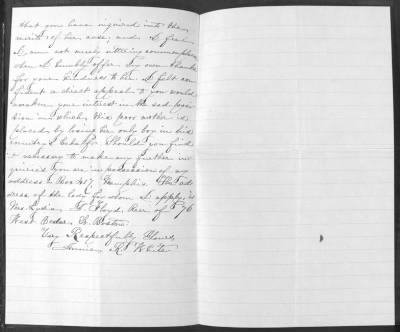 that you have inquired into the
merits of her case, and I feel
I am not merely uttering commonplace
when I humbly offer my own thanks
for your kindness to her. I felt con
fident a direct appeal to you would
awaken your interest in the sad posi
tion in which this poor mother is
placed by losing her only boy in his
country's behalf. Should you find
it necessary to make any further in
quiries you are in possession of my
address Box Memphis. The ad
dress of the lady for whom I apply, is
Mrs. Lydia Floyd, Rear of 76
West Cedar St. Boston
Very Respectfully Yours,
R. White